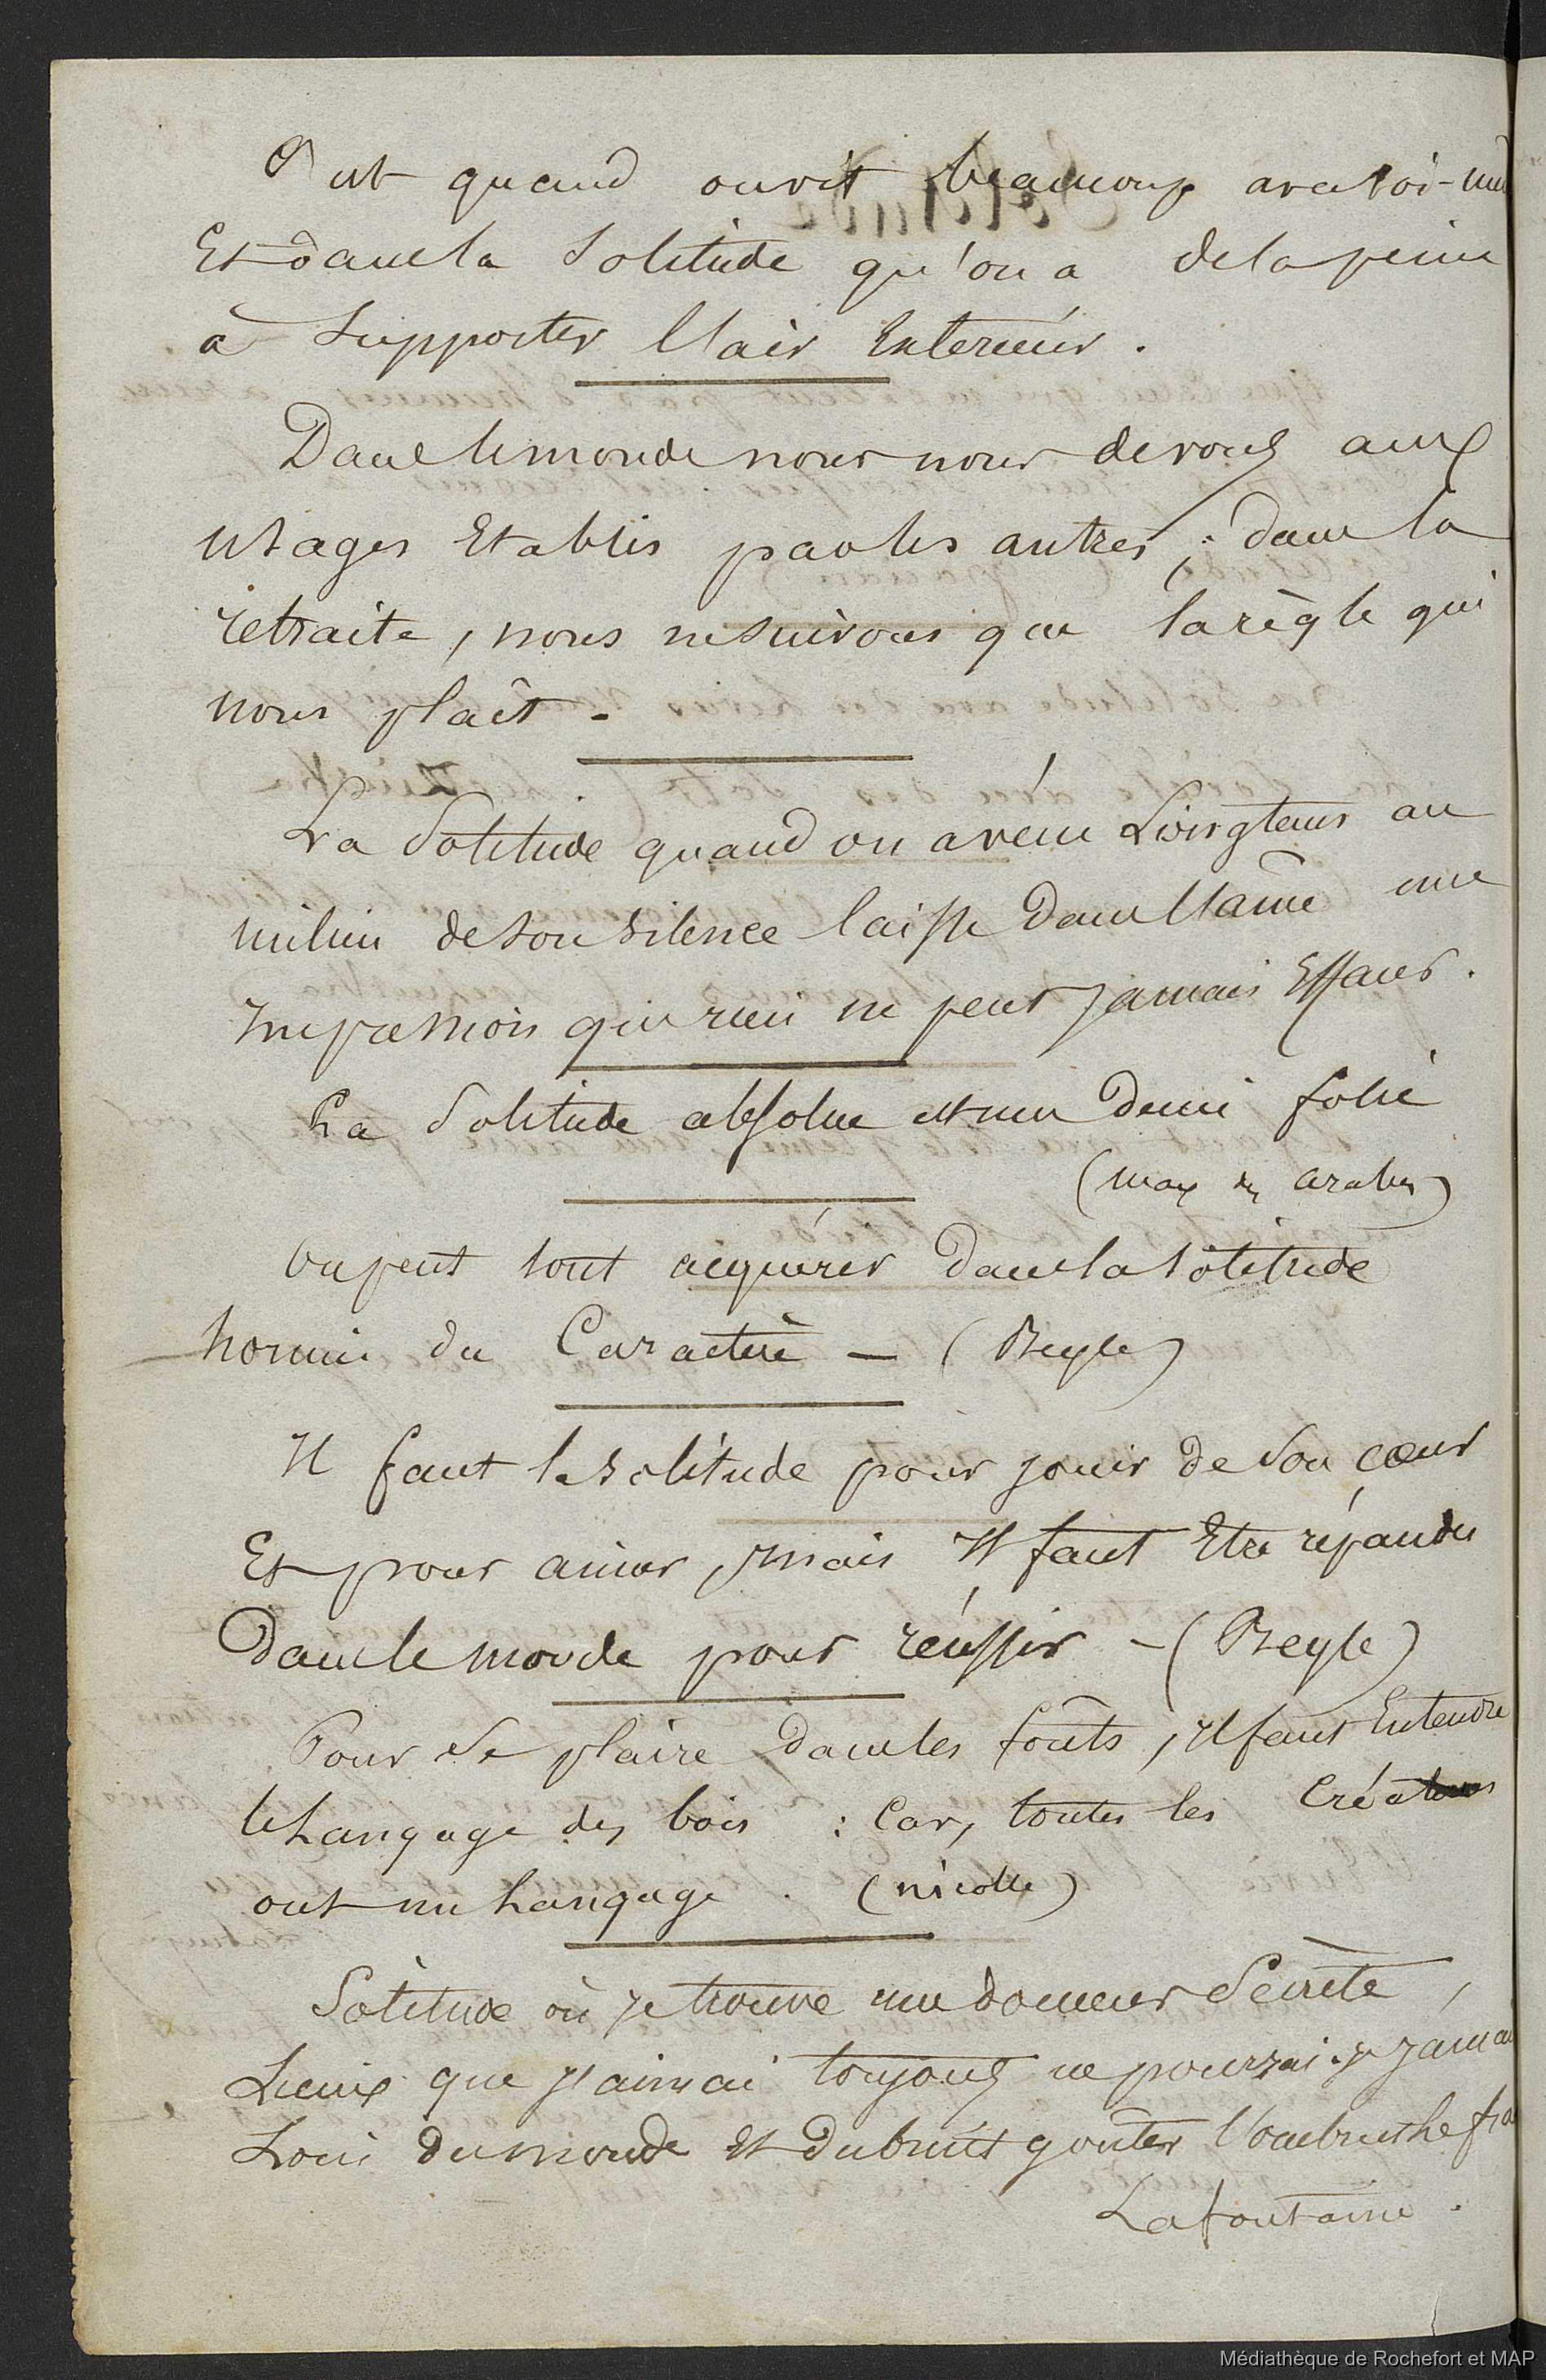 C'est quand on vit beaucoup avec soi-mê
Et dans la Solitude qu'on a de la peine
à Supporter l'air Exterieur.
Dans le monde nous nous devons aux
usages Etablis par les autres ; dans la
retraite, nous ne suivons que la règle qui
nous plaît.
La Solitude quand on a vecu Longtems au
milieu de son silence laisse dans l'âme une
Impression que rien ne peut Jamais Effacer.
La Solitude absolue est une demi folie
(max des arabes)
On peut tout acquérir dans la Solitude
hormis du Caractère — (Beyle)
Il faut la solitude pour jouir de Son cœur
Et pour aimer, mais Il faut Etre répandu
dans le monde pour réussir - (Beyle)
Pour Se plaire dans les forêts, Il faut Entendre
le Langage des bois : Car, toutes les Créatures
ont un Langage. (nicolle)
Solitude où Je trouve une douceur Secrète,
Lieux que J'aimai toujours ne pourrai-Je Jamai
Loin du monde Et du bruit gouter l'ombre et le fra
Lafontaine.
Médiathèque de Rochefort et MAP